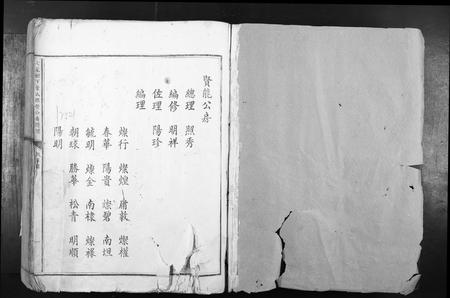 賢龍公房
總理 照秀
編修 明祥
佐理 陽珍
編理
燦行 燦煌 南毅 燦權
春華 陽貴 燦碧 南坦
毓明 燦金 南棣 燦祿
朝球 勝華 松青 明順
陽明